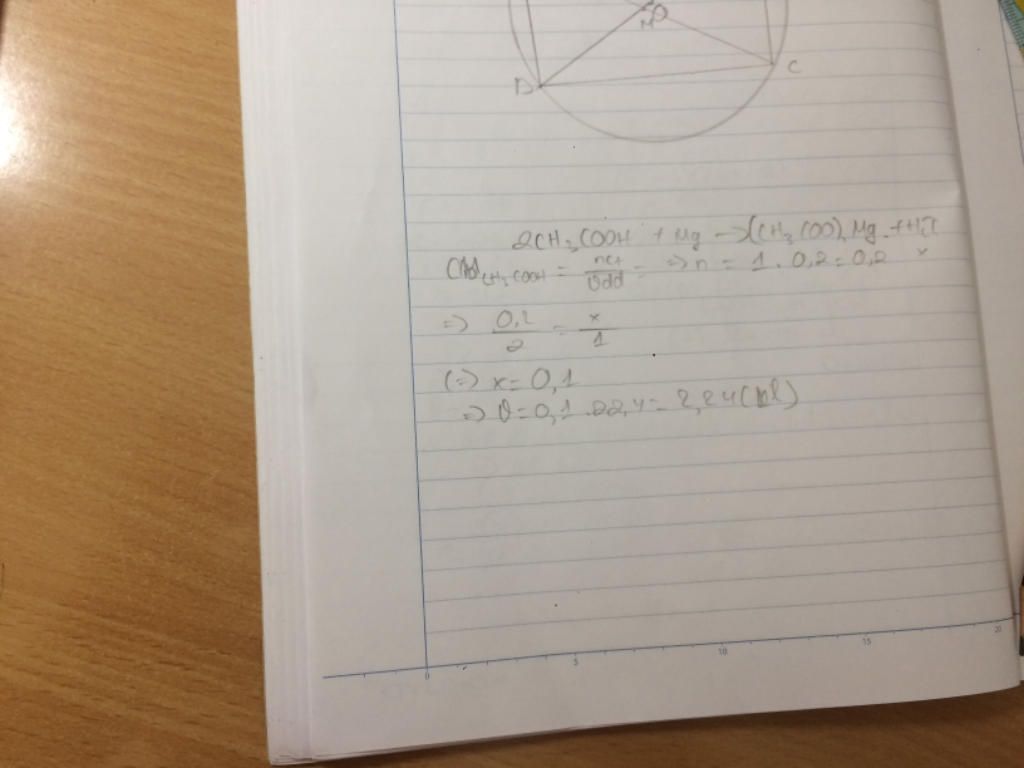 O
D
C
2CH3COOH + Mg -> (CH3COO)2Mg + H2↑
CMCH3COOH = nct/Vdd = => n = 1 . 0,2 = 0,2 x
=> 0,2/2 = x/1
(=> x = 0,1
=> V = 0,1 . 22,4 = 2,24 (l)
0 5 10 15 20